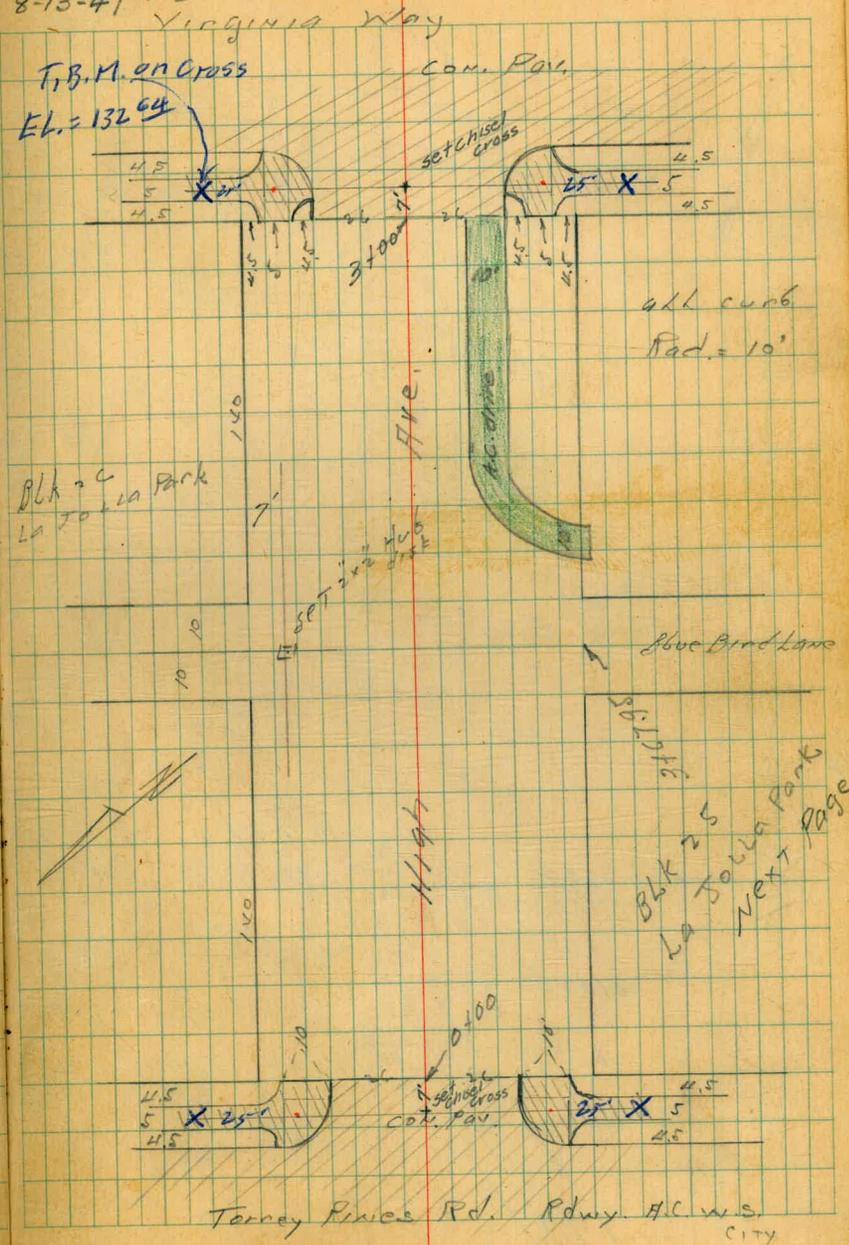 8-13-41
Virginia Way
T.B.M. on Cross
EL. = 132 64
Con. Pav.
set chisel
cross
4.5
5
4.5
25'
4.5
5
4.5
26
7'
26
3+00
4.5
5
4.5
4.5
5
4.5
10'
all curb
Rad. = 10'
140
Ave.
A.C. drive
BLK 26
La Jolla Park
7'
Set 2"x2"
10'
10
10
Blue Bird Lane
3+67.95
BLK 25
La Jolla Park
Next Page
High
140
0+00
10
10'
26
26
7'
set chisel
cross
Con. Pav.
4.5
5
4.5
25'
25'
4.5
5
4.5
Torrey Pines Rd. Rdwy. A.C. W.S.
City